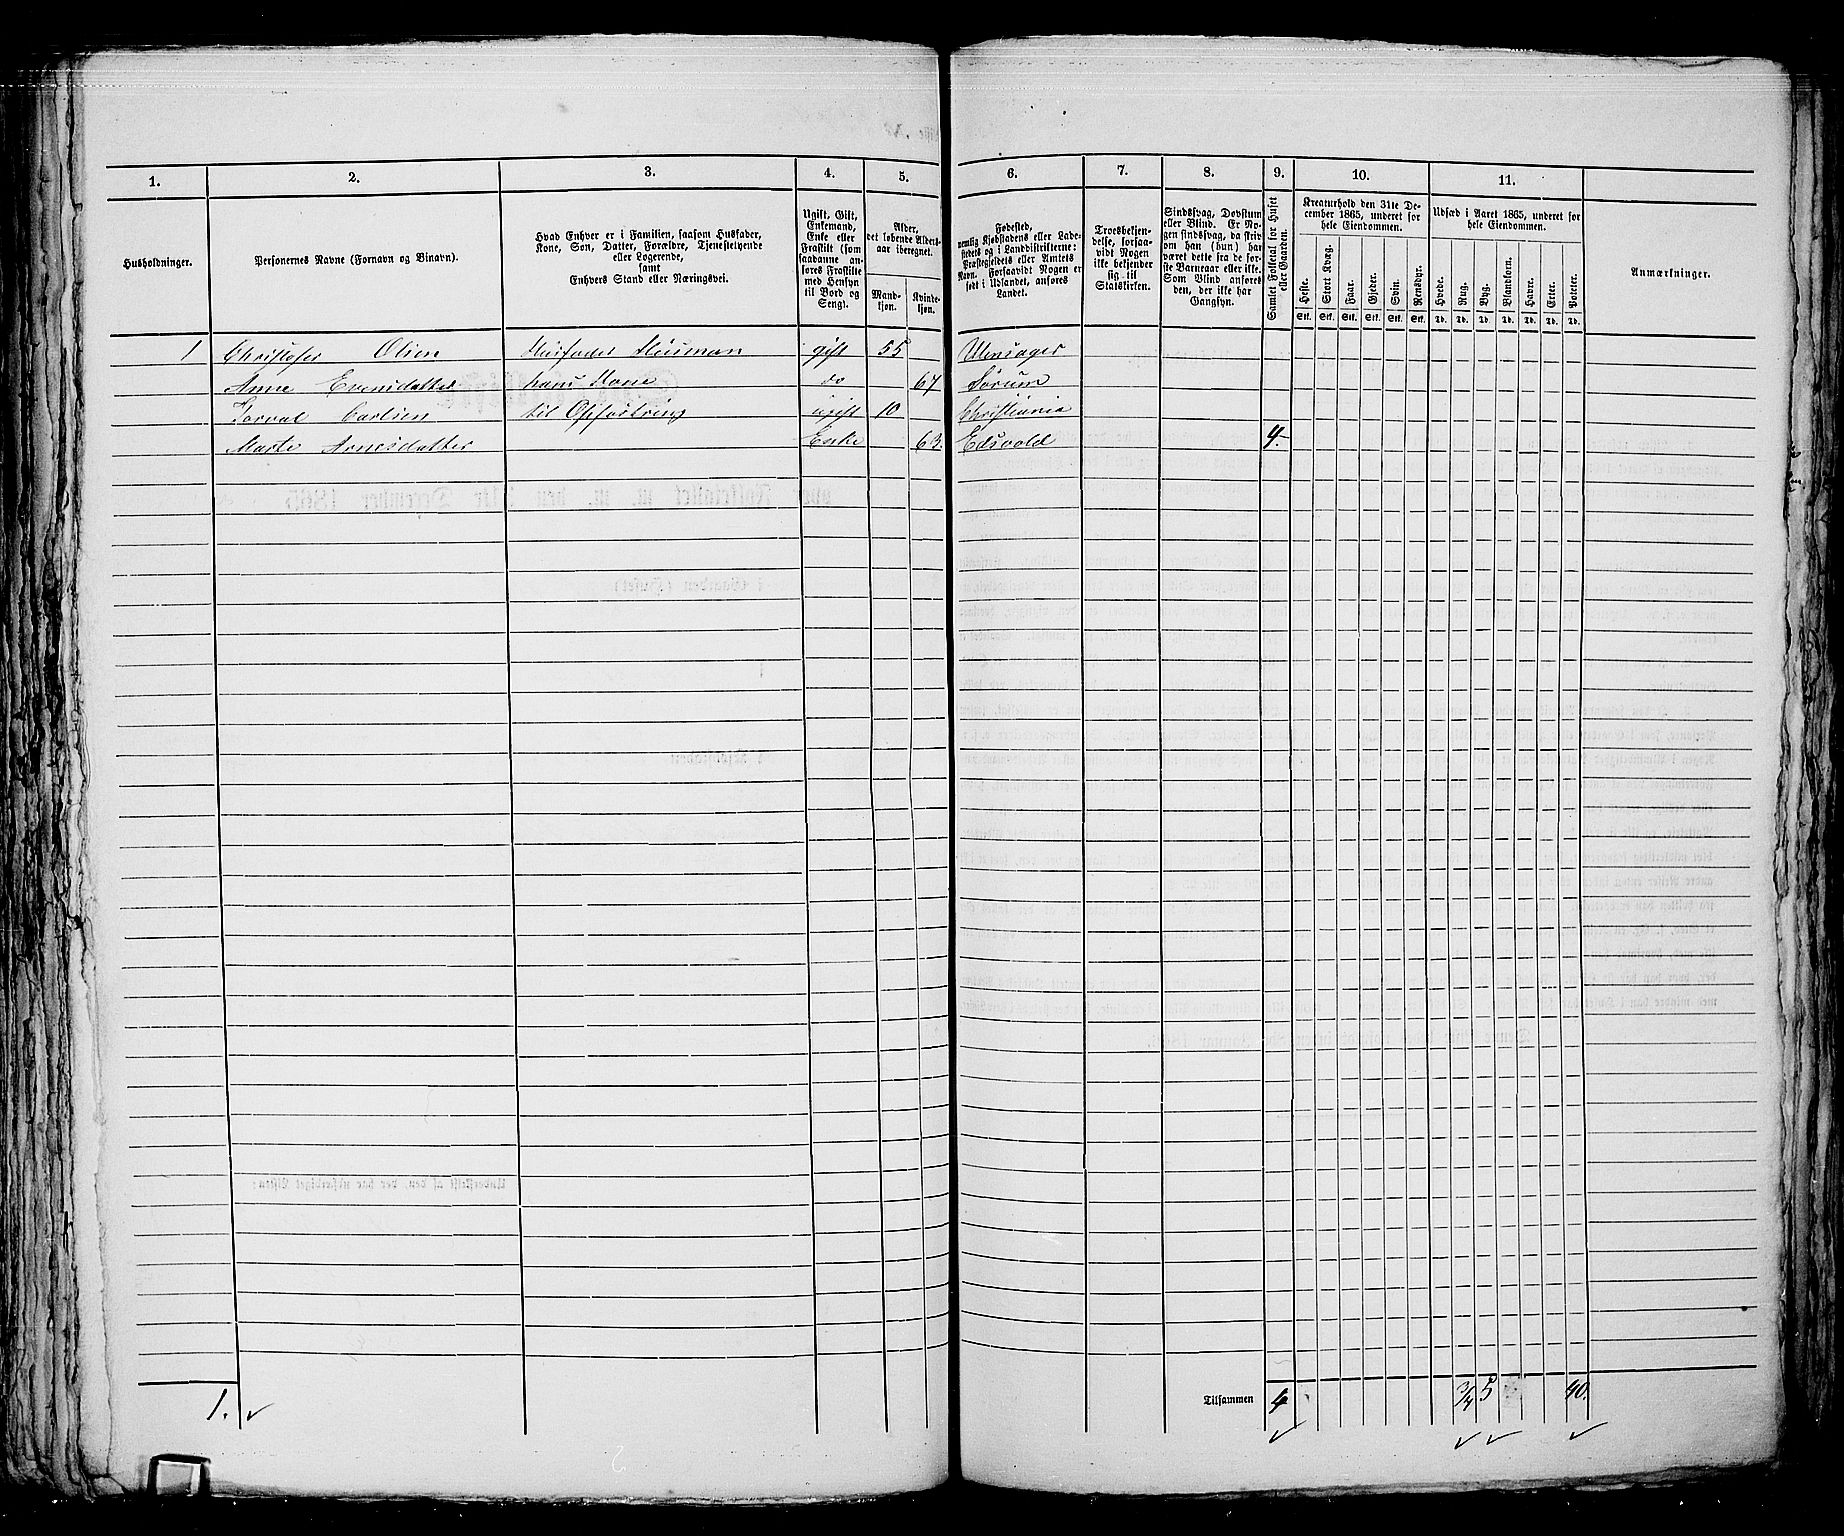 1. 2. 3. 4. 5. 6. 7. 8. 9. 10. 11.
Husholdninger.
Personernes Navne (Fornavn og Binavn).
Hvad Enhver er i Familien, saasom Husfader,
Kone, Søn, Datter, Forældre, Tjenestetyende
eller Logerende,
samt
Enhvers Stand eller Næringsvei.
Ugift, Gift,
Enkemand,
Enke eller
Fraskilt (som
saadanne an-
føres Fraskilte
med Hensyn
til Bord og
Seng).
Alder,
det løbende Alders-
aar iberegnet.
Mand-
kjøn.
Kvinde-
kjøn.
Fødested,
nemlig Kjøbstadens eller Lade-
stedets eller i Landdistrikterne:
Præstegjeldets eller Amtets
Navn. Forsaavidt Nogen er
født i Udlandet, anføres
Landet.
Troesbekjen-
delse, forsaa-
vidt Nogen
ikke bekjender
sig til
Statskirken.
Sindssvag, Døvstum
eller Blind. Er No-
gen sindssvag, da skriv
om han (hun) har
været dette fra de før-
ste Barneaar eller ikke.
Som Blind anføres
den, der ikke har
Gangsyn.
Samlet Folketal for Huset
eller Gaarden.
Kreaturhold den 31te De-
cember 1865, underet for
hele Eiendommen.
Heste. Stort Kvæg. Faar. Gjeder. Svin. Rensdyr.
Stk. Stk. Stk. Stk. Stk. Stk.
Udsæd i Aaret 1865, underet for
hele Eiendommen.
Hvede. Rug. Byg. Blandkorn. Havre. Erter. Poteter.
Td. Td. Td. Td. Td. Td. Td.
Anmærkninger.
1 Christofer Olsen Husfader Husman gift 55 Ulensager
Anne Evensdatter hans Kone do 67 Sørum
Torval Carlsen til Opfostring ugift 10 Christiania
Marte Arnesdatter Enke 63. Edsvold 4.
1. Tilsammen 4 3/4 5 40.